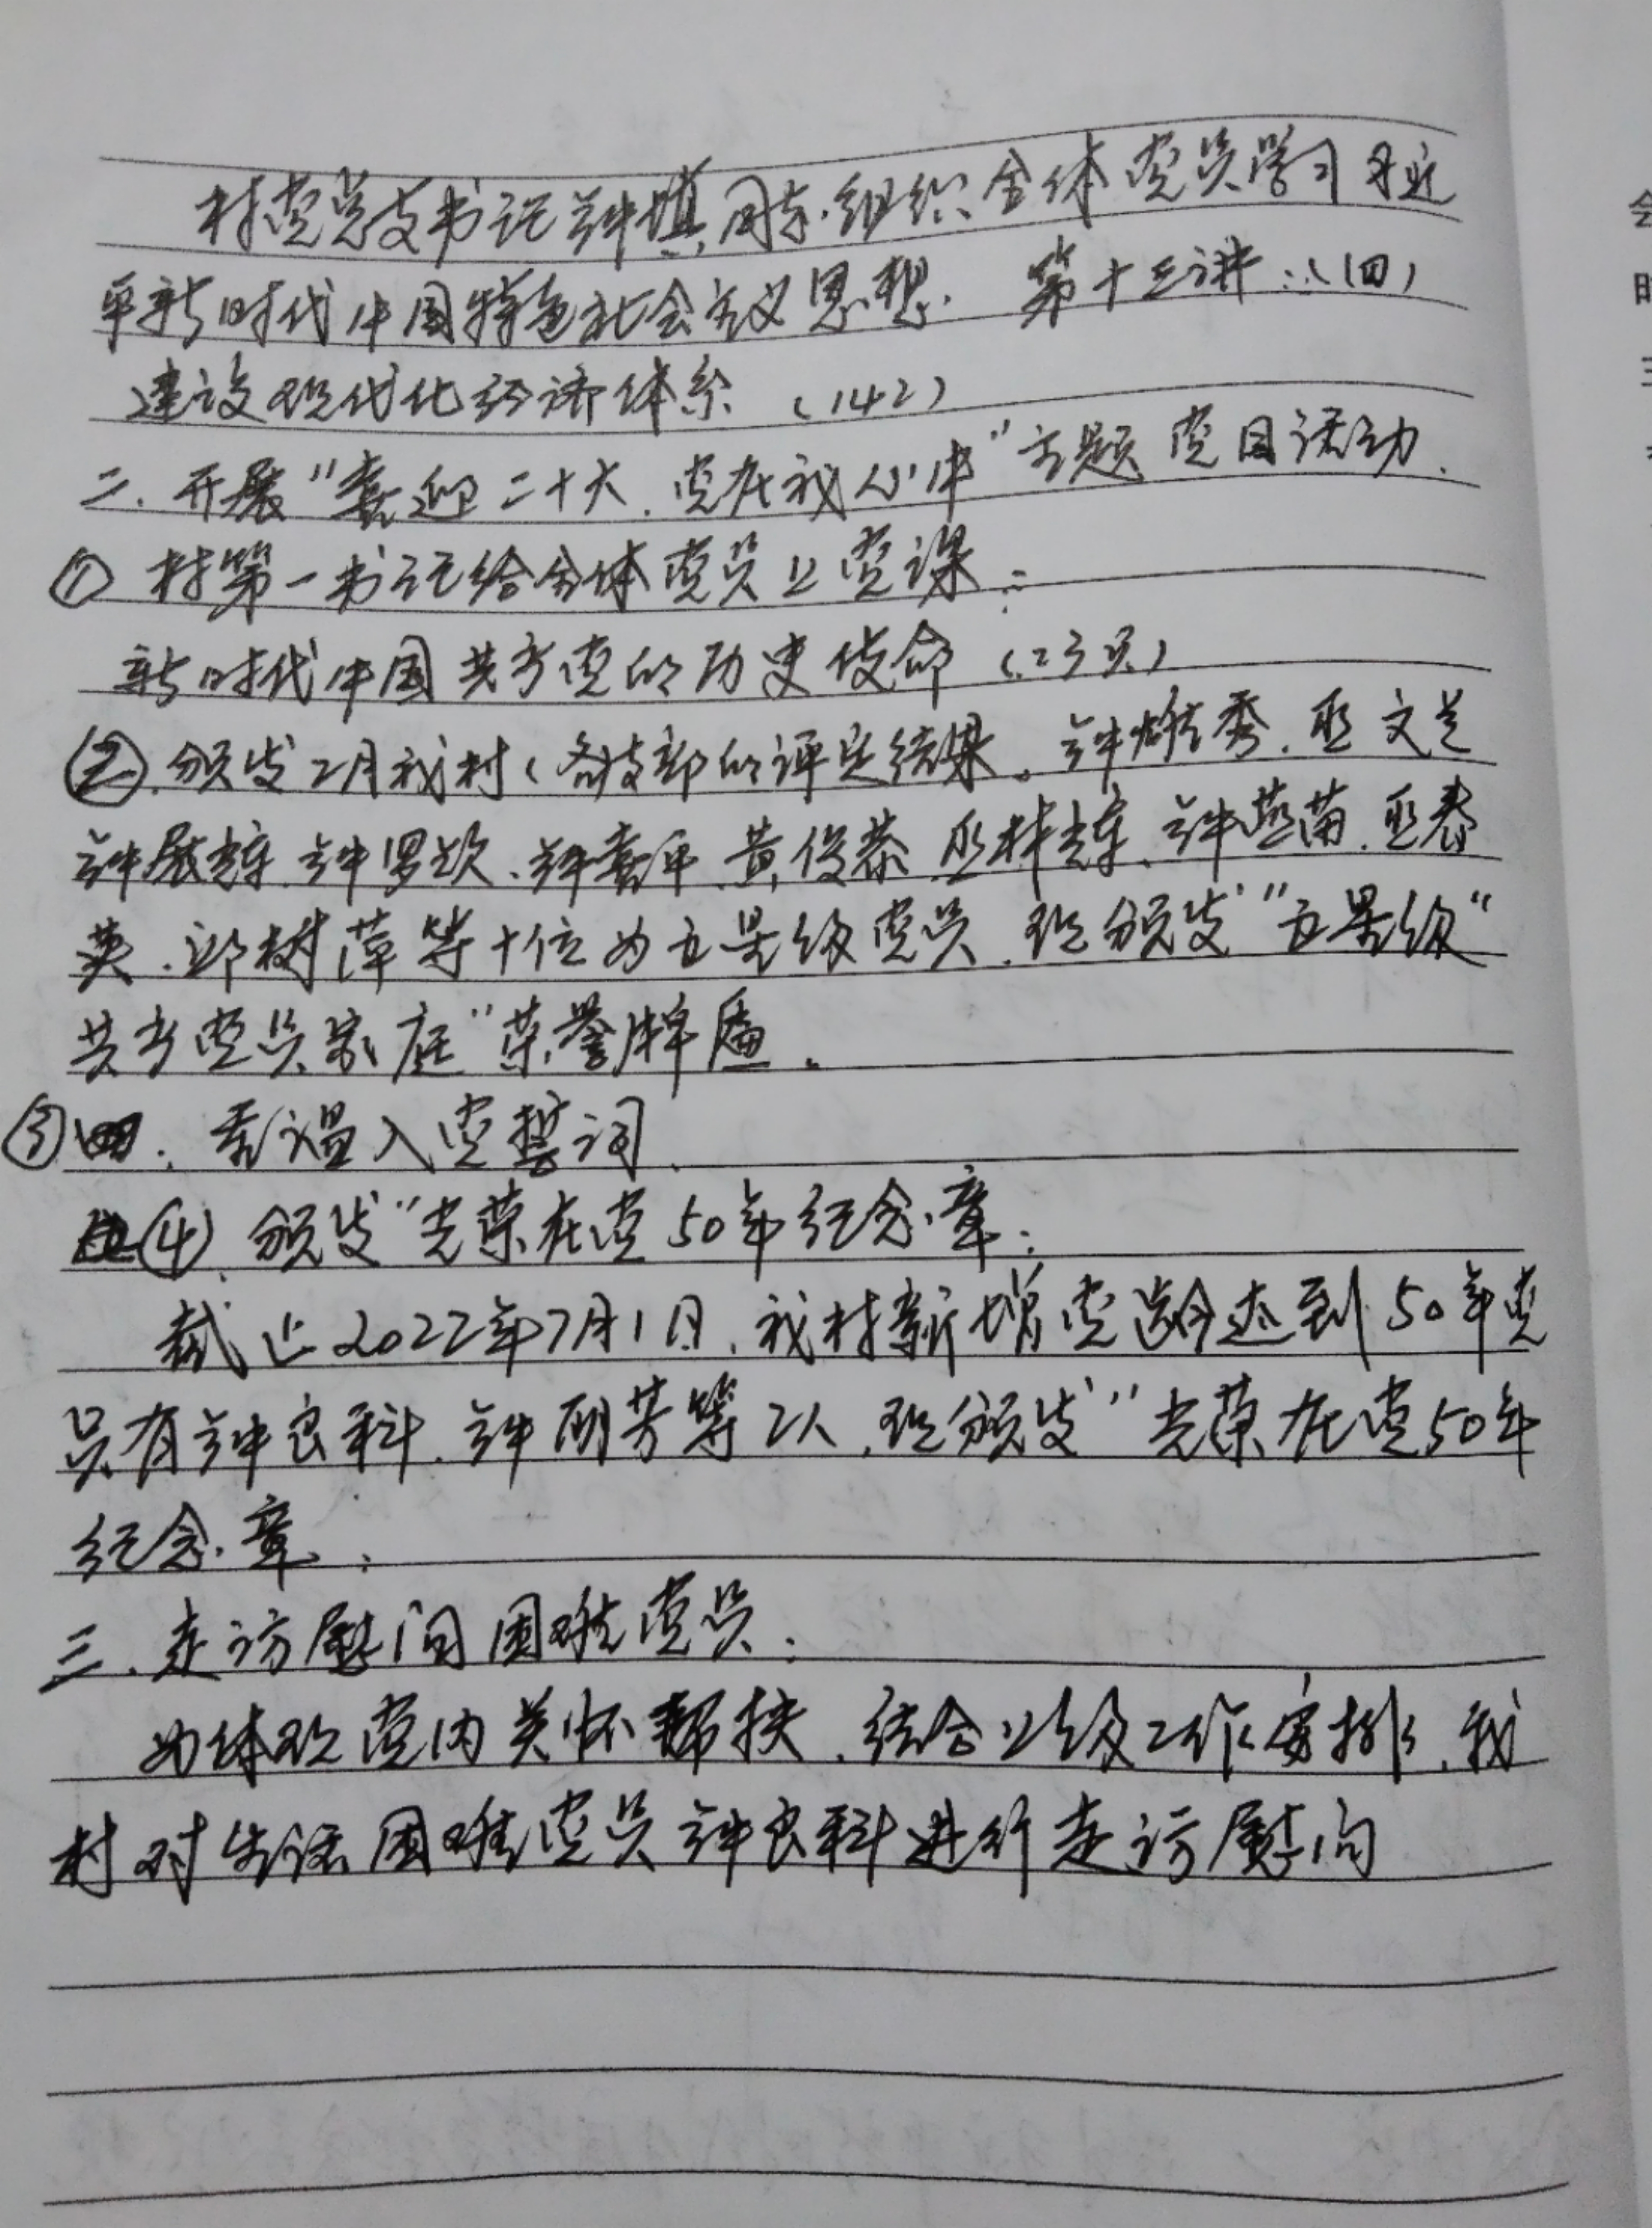 村党总支书记钟填周东组织全体党员学习习近
平新时代中国特色社会主义思想. 第十三讲:(四)
建设现代化经济体系 (142)
二. 开展"喜迎二十大.党在我心中"主题党日活动.
① 村第一书记给全体党员上党课:
新时代中国共产党的历史使命 (23页)
②.颁发2月我村(各支部的评定结果。钟雄秀.巫文兰
钟展辉.钟罗欣、钟喜平.黄俊恭.巫林辉、钟燕苗.巫春
英.邱树萍等十位为五星级党员.现颁发"五星级"
共产党员家庭"荣誉牌匾。
③ 四. 重温入党誓词.
④.颁发"光荣在党50年纪念章:
截止2022年7月1日.我村新增党龄达到50年党
员有钟良科.钟丽芳等2人.现颁发"光荣在党50年
纪念章:
三.走访慰问困难党员:
为体现党内关怀帮扶.结合上级工作安排.我
村对生活困难党员钟良科进行走访慰问
会
时